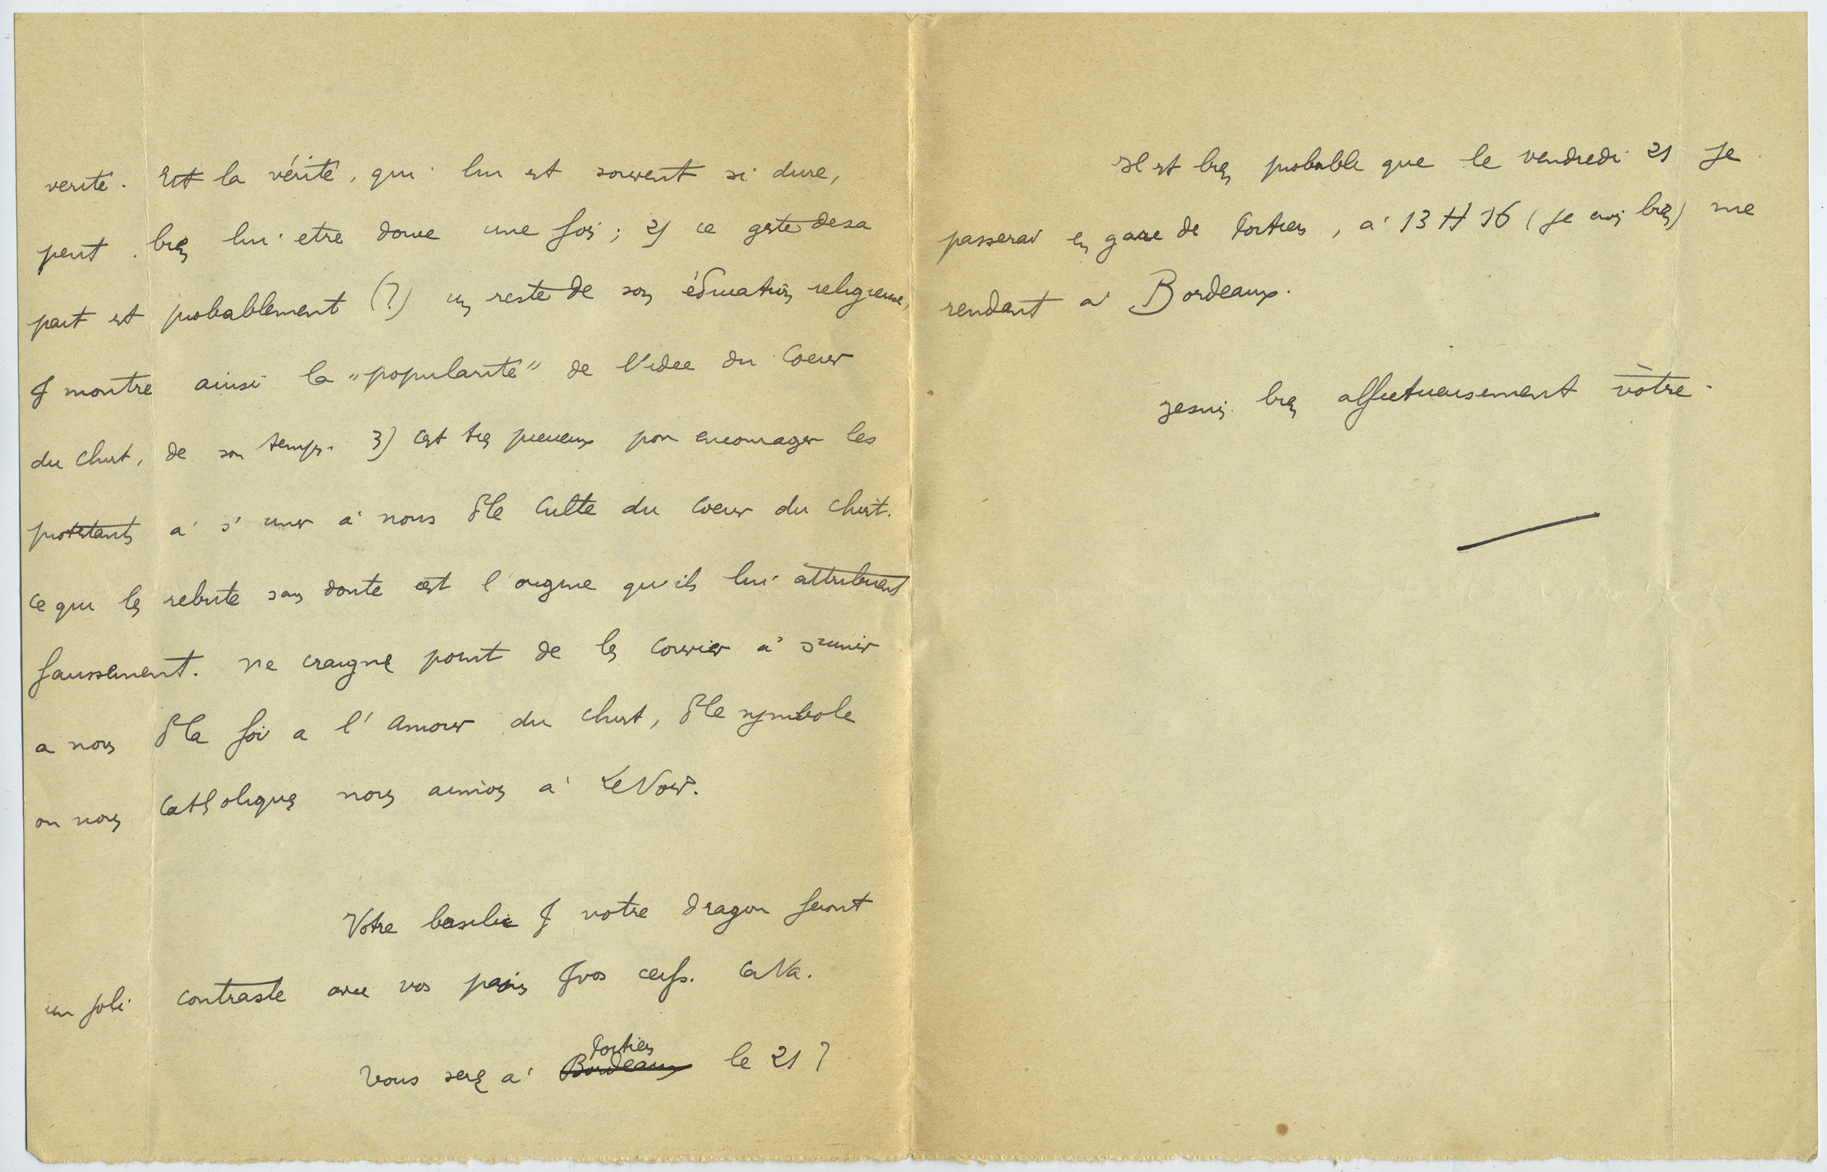 verité. Et la vérité, qui lui est souvent si dure,
peut bien lui etre douce une fois; 2) ce geste de sa
part est probablement (?) un reste de son éducation religieuse,
& montre ainsi la "popularité" de l'idée du Coeur
du Christ, de son temps. 3) C'est très précieux pour encourager les
protestants à s'unir à nous ds le culte du Coeur du Christ.
Ce qui les rebute sans doute est l'origine qu'ils lui attribuent
faussement. Ne craignez point de les convier à s'unir
a nous ds la foi a l'Amour du Christ, ds le symbole
ou nous Catholiques nous aimons à Le Voir.
Votre basilic & votre dragon feront
un joli contraste avec vos paons & vos cerfs. Ca Va.
Vous serez à Bordeaux Poitiers le 21?
Il est bien probable que le vendredi 21 je
passerai en gare de Poitiers, à 13 H 16 (je crois bien) me
rendant à Bordeaux.
Je suis bien affectueusement vôtre.